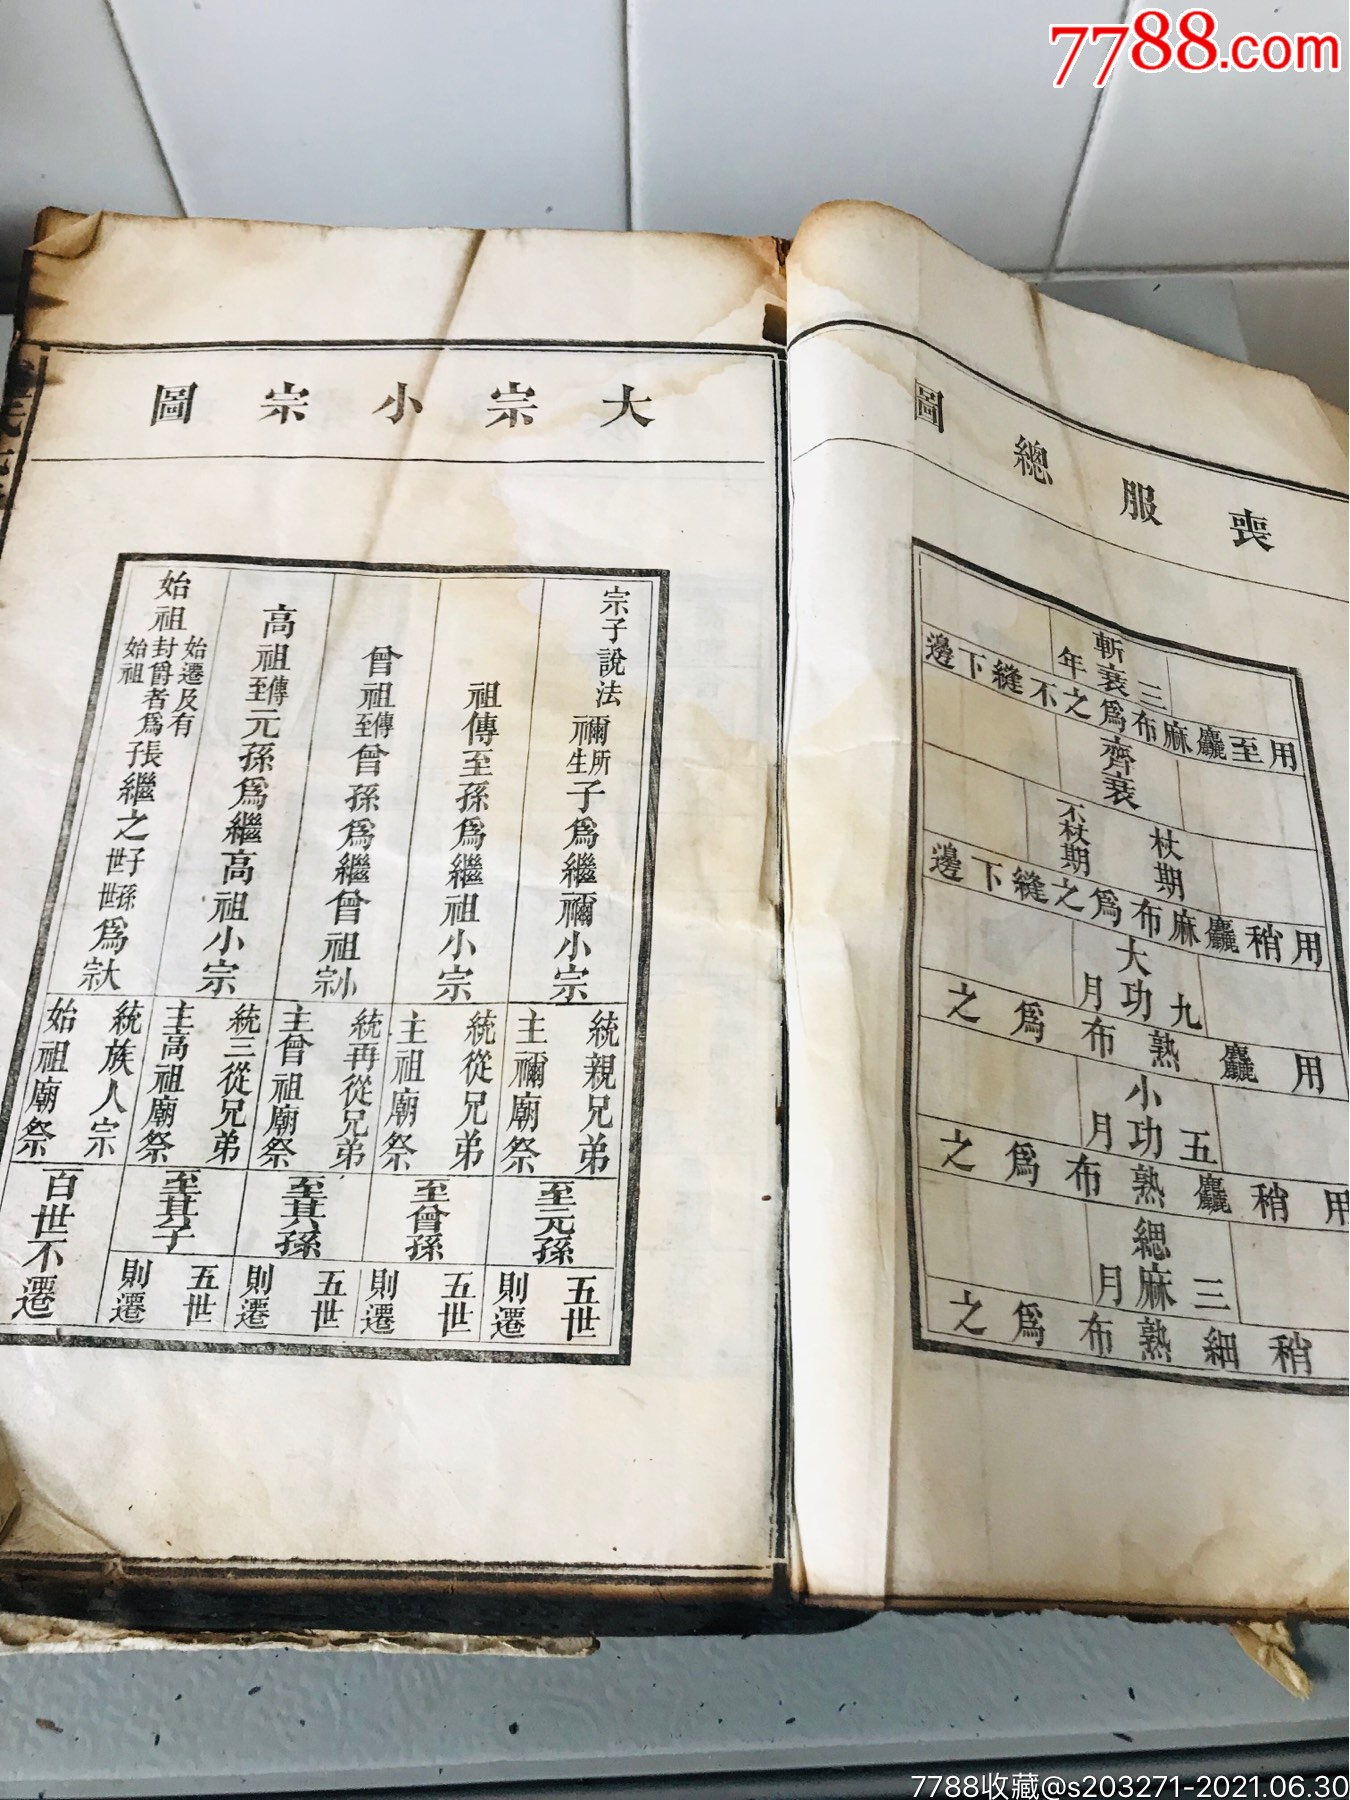 7788.com
喪服總圖
斬衰三年
用至麤麻布為之不縫下邊
齊衰
杖期
不杖期
用稍麤麻布為之縫下邊
大功九月
用麤熟布為之
小功五月
用稍麤熟布為之
緦麻三月
稍細熟布為之
大宗小宗圖
宗子說法禰所生子為繼禰小宗
祖傳至孫為繼祖小宗
曾祖傳至曾孫為繼曾祖小宗
高祖傳至元孫為繼高祖小宗
始祖始遷及有封爵者為始祖長子繼之子世孫世為大宗
統親兄弟主禰廟祭
統從兄弟主祖廟祭
統再從兄弟主曾祖廟祭
統三從兄弟主高祖廟祭
統族人宗始祖廟祭
至元孫
至曾孫
至其孫
至其子
百世不遷
五世則遷
五世則遷
五世則遷
五世則遷
7788收藏@s203271-2021.06.30